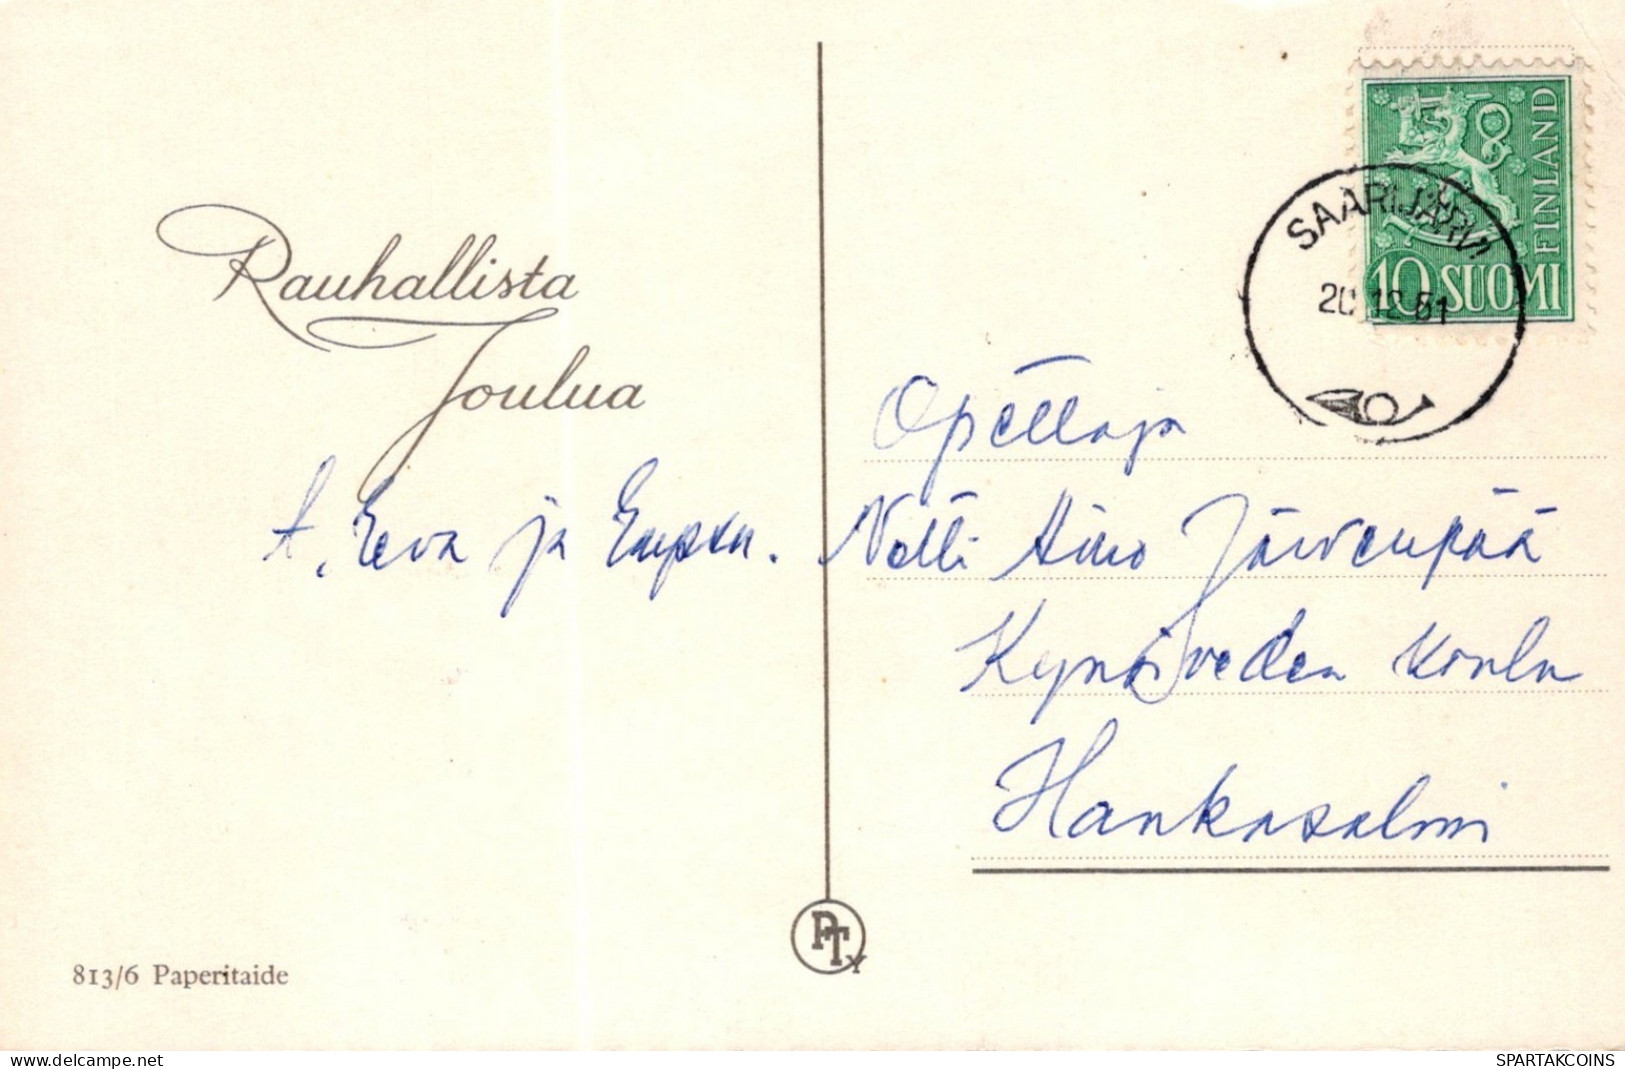 Rauhallista
Joulua
Eeva ja
813/6 Paperitaide
PTY
FINLAND
10 SUOMI
SAARIJÄRVI
20.12.61
Opettaja
Aino Järvenpää
Kynsiveden koulu
Hankasalmi
www.delcampe.net
SPARTAKCOINS